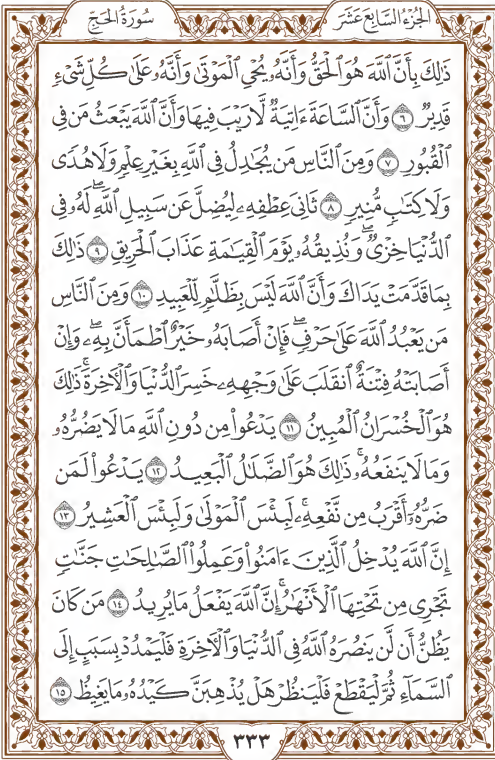 الجزء السابع عشر
سورة الحج
ذَٰلِكَ بِأَنَّ ٱللَّهَ هُوَ ٱلْحَقُّ وَأَنَّهُۥ يُحْىِ ٱلْمَوْتَىٰ وَأَنَّهُۥ عَلَىٰ كُلِّ شَىْءٍ
قَدِيرٌ ٦ وَأَنَّ ٱلسَّاعَةَ ءَاتِيَةٌ لَّا رَيْبَ فِيهَا وَأَنَّ ٱللَّهَ يَبْعَثُ مَن فِى
ٱلْقُبُورِ ٧ وَمِنَ ٱلنَّاسِ مَن يُجَـٰدِلُ فِى ٱللَّهِ بِغَيْرِ عِلْمٍ وَلَا هُدًى
وَلَا كِتَـٰبٍ مُّنِيرٍ ٨ ثَانِىَ عِطْفِهِۦ لِيُضِلَّ عَن سَبِيلِ ٱللَّهِ ۖ لَهُۥ فِى
ٱلدُّنْيَا خِزْىٌ ۖ وَنُذِيقُهُۥ يَوْمَ ٱلْقِيَـٰمَةِ عَذَابَ ٱلْحَرِيقِ ٩ ذَٰلِكَ
بِمَا قَدَّمَتْ يَدَاكَ وَأَنَّ ٱللَّهَ لَيْسَ بِظَلَّـٰمٍ لِّلْعَبِيدِ ١٠ وَمِنَ ٱلنَّاسِ
مَن يَعْبُدُ ٱللَّهَ عَلَىٰ حَرْفٍ ۖ فَإِنْ أَصَابَهُۥ خَيْرٌ ٱطْمَأَنَّ بِهِۦ ۖ وَإِنْ
أَصَابَتْهُ فِتْنَةٌ ٱنقَلَبَ عَلَىٰ وَجْهِهِۦ خَسِرَ ٱلدُّنْيَا وَٱلْـَٔاخِرَةَ ۚ ذَٰلِكَ
هُوَ ٱلْخُسْرَانُ ٱلْمُبِينُ ١١ يَدْعُوا۟ مِن دُونِ ٱللَّهِ مَا لَا يَضُرُّهُۥ
وَمَا لَا يَنفَعُهُۥ ۚ ذَٰلِكَ هُوَ ٱلضَّلَـٰلُ ٱلْبَعِيدُ ١٢ يَدْعُوا۟ لَمَن
ضَرُّهُۥٓ أَقْرَبُ مِن نَّفْعِهِۦ ۚ لَبِئْسَ ٱلْمَوْلَىٰ وَلَبِئْسَ ٱلْعَشِيرُ ١٣
إِنَّ ٱللَّهَ يُدْخِلُ ٱلَّذِينَ ءَامَنُوا۟ وَعَمِلُوا۟ ٱلصَّـٰلِحَـٰتِ جَنَّـٰتٍ
تَجْرِى مِن تَحْتِهَا ٱلْأَنْهَـٰرُ ۚ إِنَّ ٱللَّهَ يَفْعَلُ مَا يُرِيدُ ١٤ مَن كَانَ
يَظُنُّ أَن لَّن يَنصُرَهُ ٱللَّهُ فِى ٱلدُّنْيَا وَٱلْـَٔاخِرَةِ فَلْيَمْدُدْ بِسَبَبٍ إِلَى
ٱلسَّمَآءِ ثُمَّ لْيَقْطَعْ فَلْيَنظُرْ هَلْ يُذْهِبَنَّ كَيْدُهُۥ مَا يَغِيظُ ١٥
٣٣٣